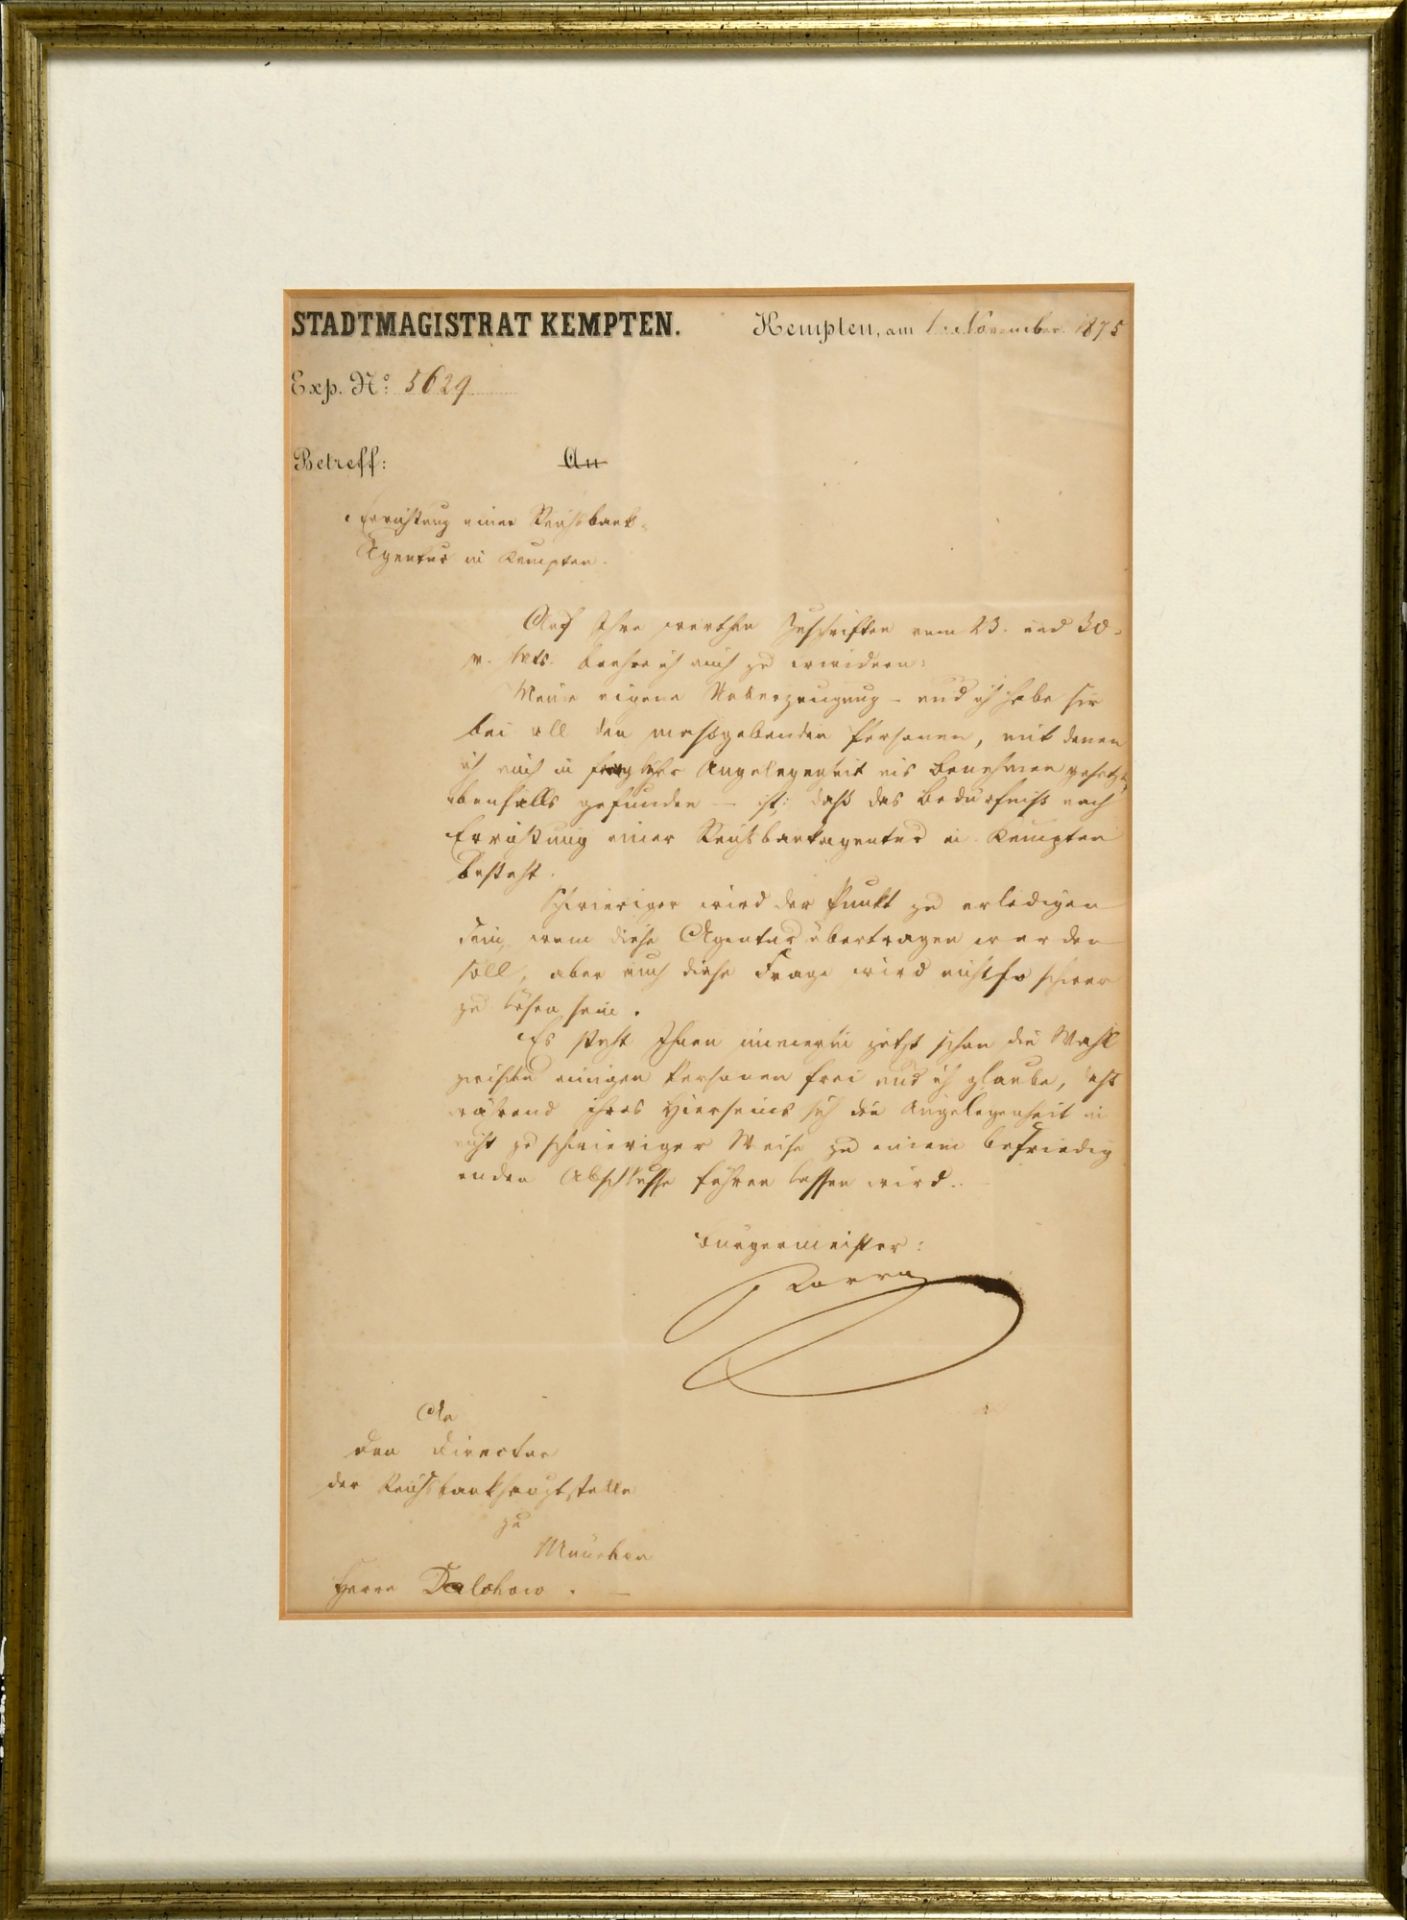 STADTMAGISTRAT KEMPTEN. Kempten, am 1. November 1875
Exp. No: 5629
Betreff: An
Errichtung einer Reichsbank-
Agentur in Kempten.
Auf Ihre werthen Zuschriften vom 23. und 30.
v. Mts. beehre ich mich zu erwidern:
Meine eigene Ueberzeugung – und ich habe sie
bei all den massgebenden Personen, mit denen
ich mich in Angelegenheit ins Benehmen gesetzt,
ebenfalls gefunden – ist: daß das Bedürfniß nach
Errichtung einer Reichsbankagentur in Kempten
besteht.
Schwieriger wird der Punkt zu erledigen
sein, wem diese Agentur übertragen werden
soll, aber auch diese Frage wird nicht so schwer
zu lösen sein.
Es steht Ihnen immerhin jetzt schon die Wahl
zwischen einigen Personen frei und ich glaube, daß
während ihres Hierseins sich die Angelegenheit in
nicht zu schwieriger Weise zu einem befriedig
enden Abschlusse führen lassen wird.
Bürgermeister:
An
den Director
der Reichsbankhauptstelle
zu
München
Herrn Dalchow.